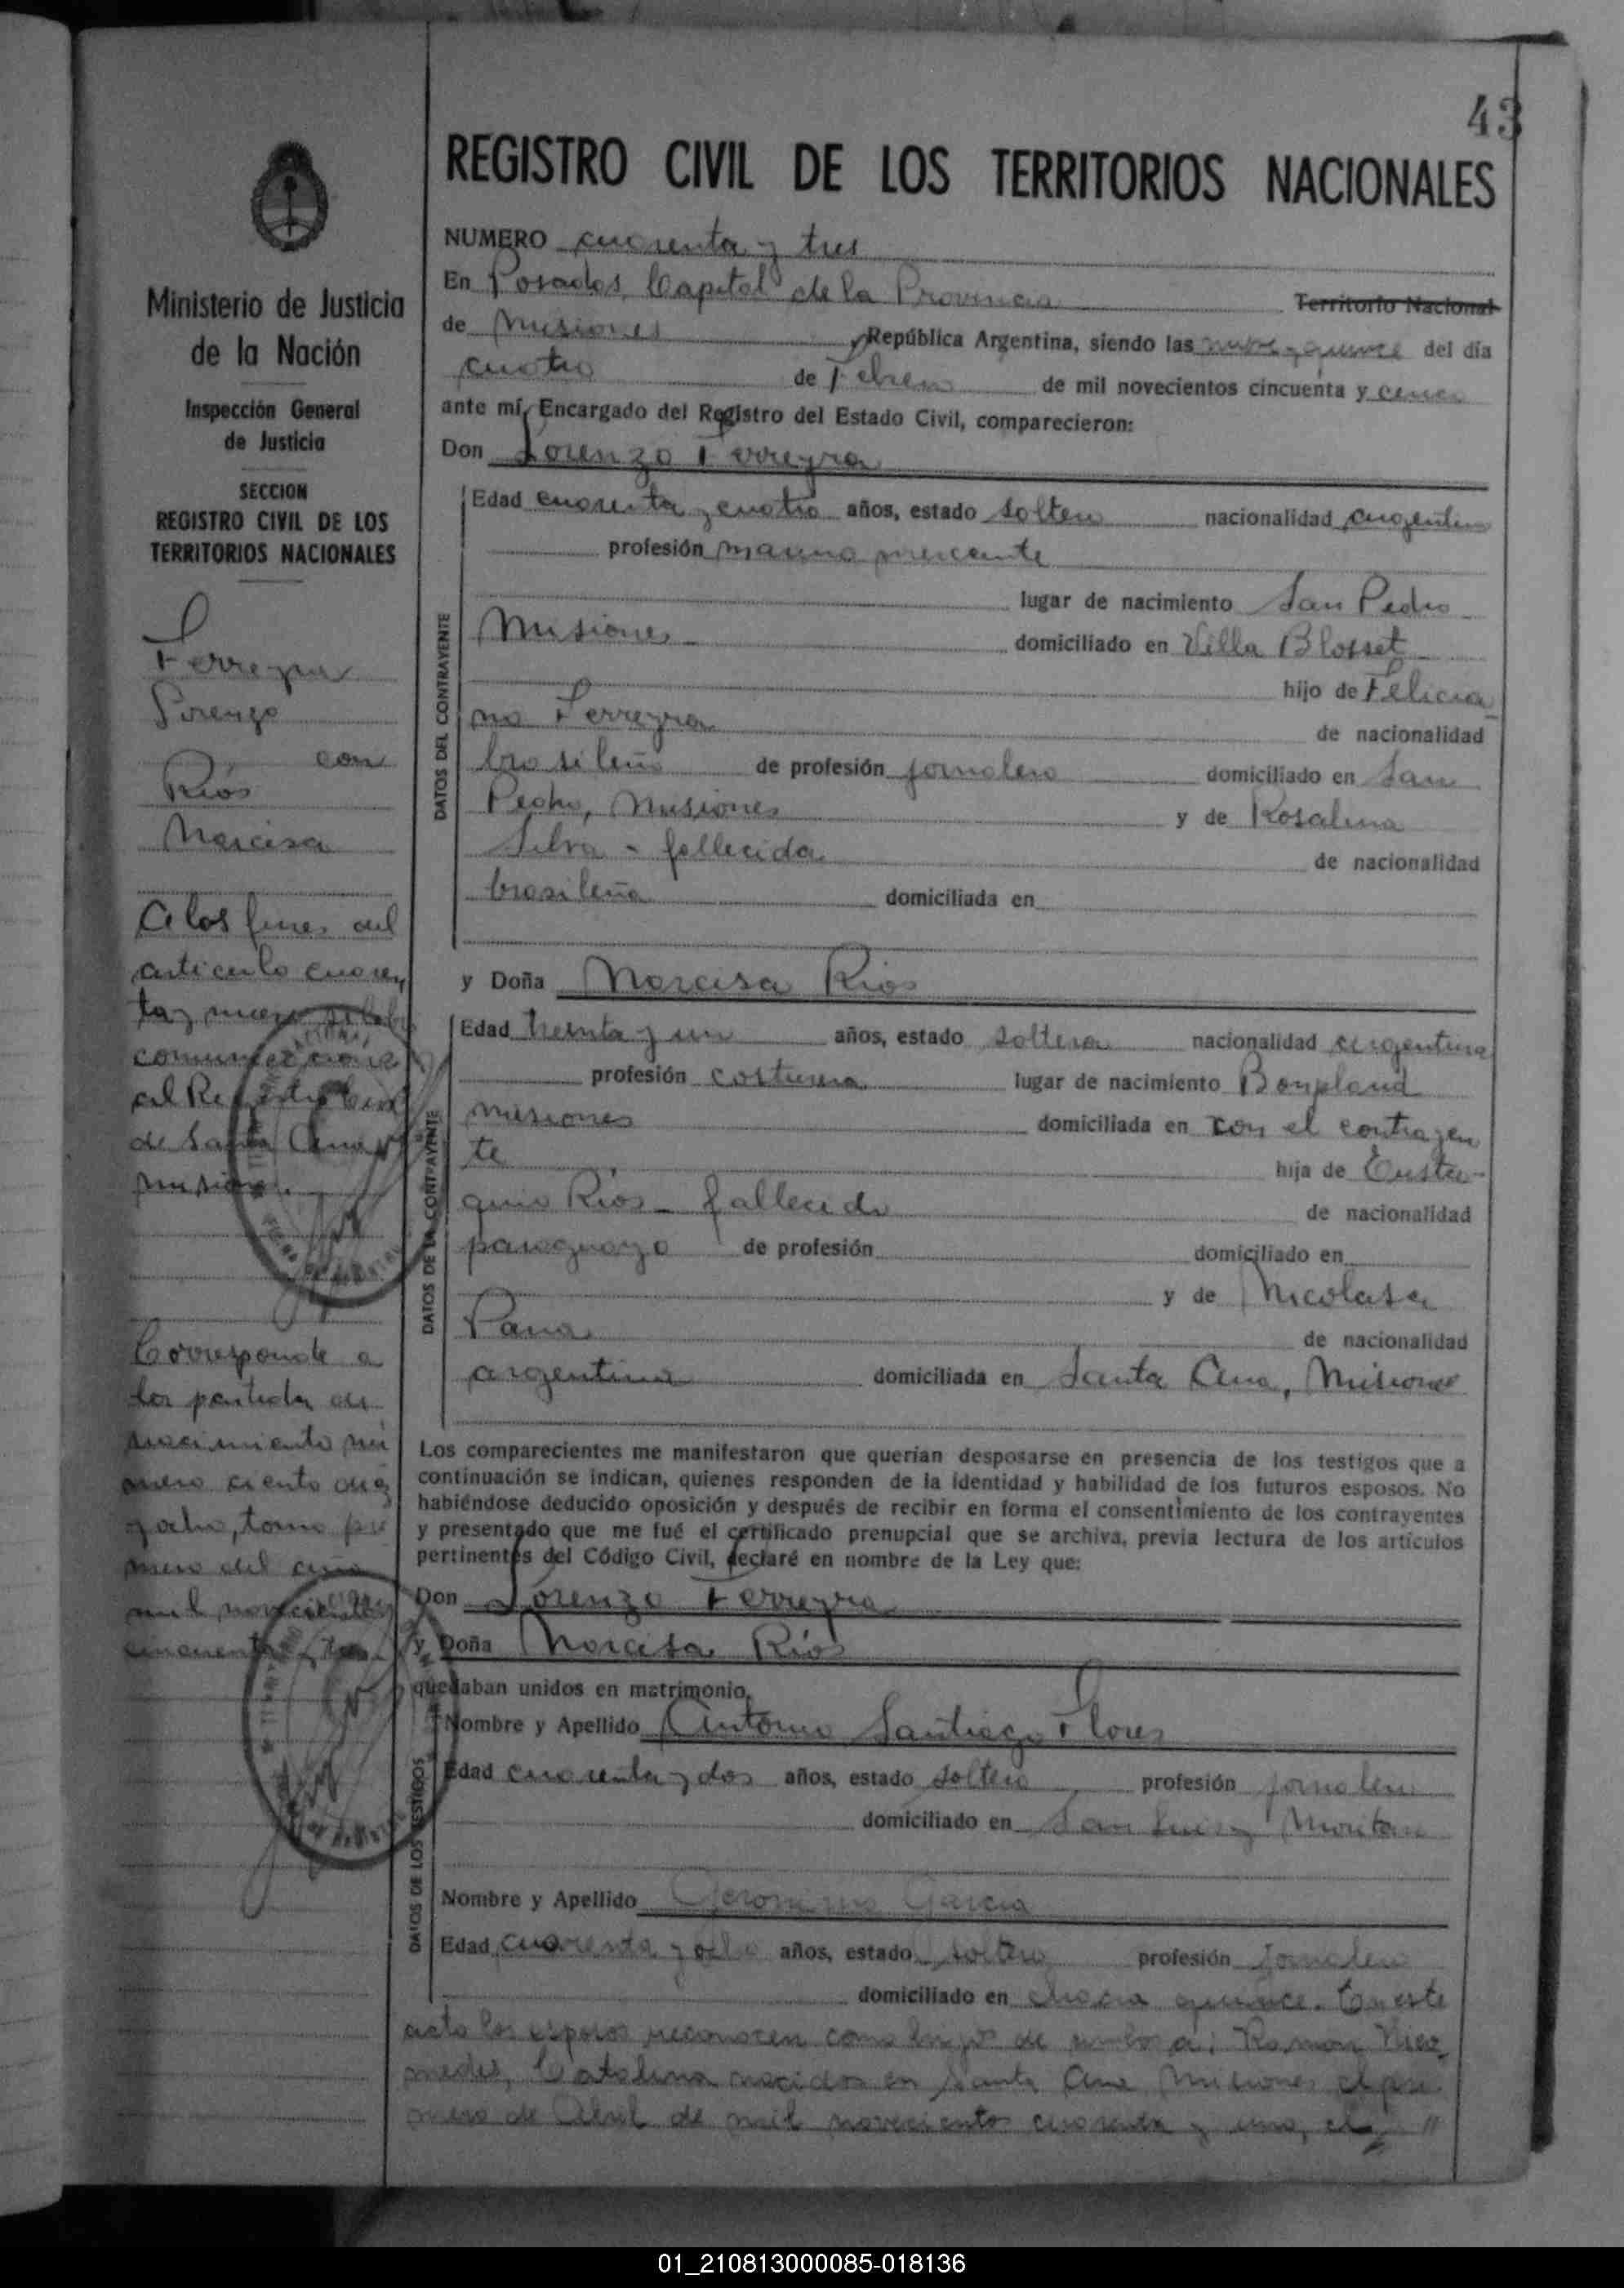 43
REGISTRO CIVIL DE LOS TERRITORIOS NACIONALES
Ministerio de Justicia
de la Nación
Inspección General
de Justicia
SECCION
REGISTRO CIVIL DE LOS
TERRITORIOS NACIONALES
Ferreyra
Lorenzo
con
Ríos
Narcisa
A los fines del
articulo cuaren
ta y nueve
comunicaciones
al Registro Civil
de Santa Ana
Misiones.
Corresponde a
la partida de
nacimiento nú
mero ciento diez
y ocho, tomo pri
mero del año
mil novecientos
cincuenta y tres.
NUMERO cuarenta y tres
En Posadas, Capital de la Provincia Territorio Nacional
de Misiones República Argentina, siendo las nueve y quince del día
cuatro de Febrero de mil novecientos cincuenta y cinco
ante mí, Encargado del Registro del Estado Civil, comparecieron:
Don Lorenzo Ferreyra
DATOS DEL CONTRAYENTE
Edad cuarenta y cuatro años, estado soltero nacionalidad argentino
profesión marino mercante
lugar de nacimiento San Pedro
Misiones domiciliado en Villa Blosset
hijo de Felicia
no Ferreyra de nacionalidad
brasileño de profesión jornalero domiciliado en San
Pedro, Misiones y de Rosalina
Silva - fallecida de nacionalidad
brasileña domiciliada en
y Doña Narcisa Ríos
DATOS DE LA CONTRAYENTE
Edad treinta y un años, estado soltera nacionalidad argentina
profesión costurera lugar de nacimiento Bonpland
misiones domiciliada en con el contrayen
te hija de Eusta-
quio Ríos - fallecido de nacionalidad
paraguayo de profesión domiciliado en
y de Nicolasa
de nacionalidad
argentina domiciliada en Santa Ana, Misiones
Los comparecientes me manifestaron que querían desposarse en presencia de los testigos que a
continuación se indican, quienes responden de la identidad y habilidad de los futuros esposos. No
habiéndose deducido oposición y después de recibir en forma el consentimiento de los contrayentes
y presentado que me fué el certificado prenupcial que se archiva, previa lectura de los artículos
pertinentes del Código Civil, declaré en nombre de la Ley que:
Don Lorenzo Ferreyra
y Doña Narcisa Ríos
quedaban unidos en matrimonio.
DATOS DE LOS TESTIGOS
Nombre y Apellido Antonio Santiago Flores
Edad cuarenta y dos años, estado soltero profesión jornalero
domiciliado en San Luis y
Nombre y Apellido Geronimo Garcia
Edad cuarenta y ocho años, estado soltero profesión jornalero
domiciliado en chacra quince. En este
acto los esposos reconocen como hijos de ambos a: Ramon Nico
medes, Catalina nacidos en Santa Ana Misiones el pri
mero de Abril de mil novecientos cuarenta y uno, el
01_210813000085-018136